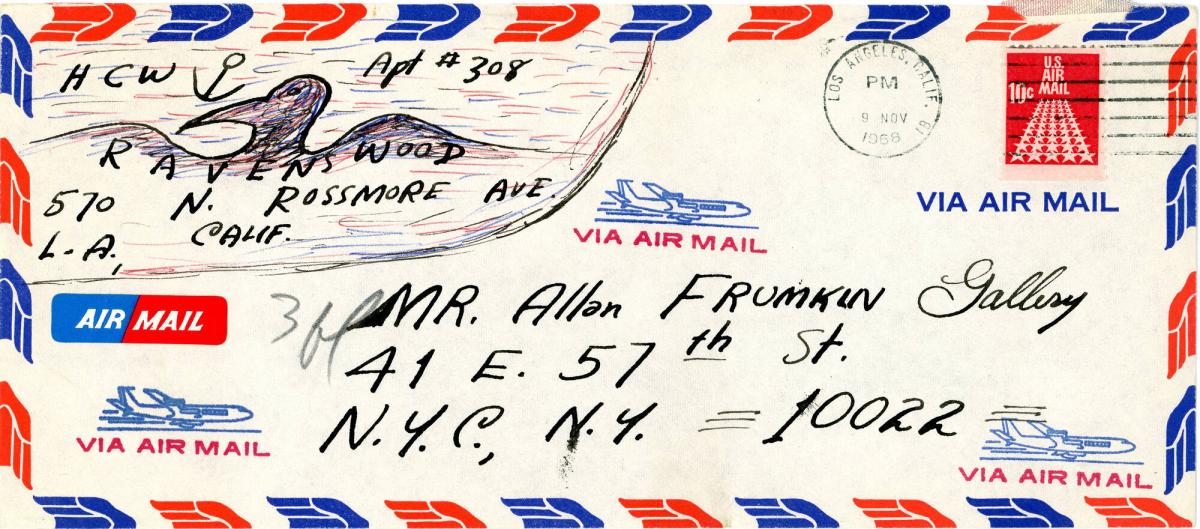 HCW Apt #308
RAVENSWOOD
570 N. ROSSMORE AVE.
L-A, CALIF.
LOS ANGELES, CALIF.
PM
9 NOV
1968
U.S.
AIR
MAIL
10c
VIA AIR MAIL
VIA AIR MAIL
AIR MAIL
MR. Allan FRUMKIN Gallery
41 E. 57th St.
N.Y.C., N.Y. = 10022 =
VIA AIR MAIL
VIA AIR MAIL